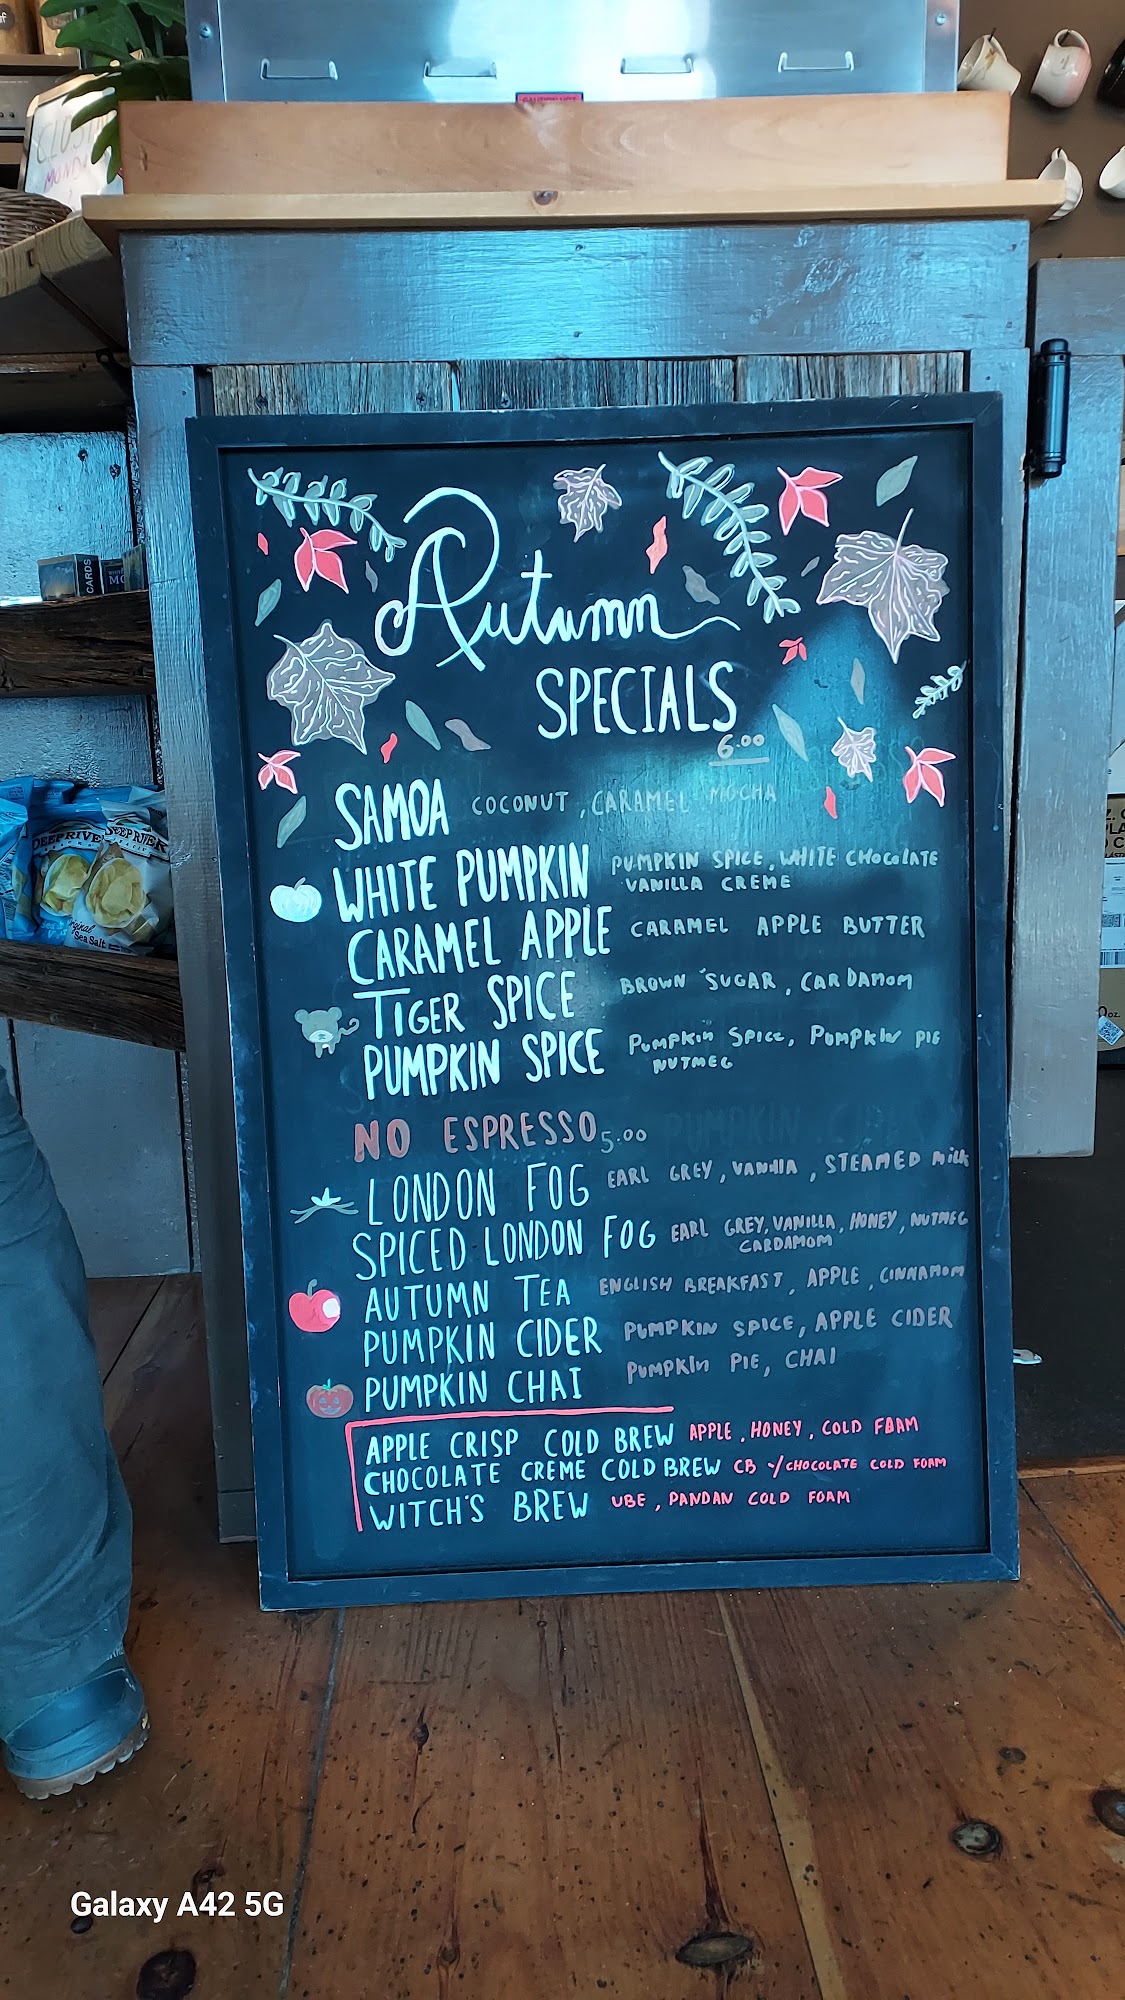 CLOS
MONDA
CARDS
DEEP RIVER
DEEP RIVER
Original
Sea Salt
Autumn
SPECIALS
6.00
SAMOA COCONUT, CARAMEL MOCHA
WHITE PUMPKIN PUMPKIN SPICE, WHITE CHOCOLATE
VANILLA CREME
CARAMEL APPLE CARAMEL APPLE BUTTER
TIGER SPICE BROWN SUGAR, CARDAMOM
PUMPKIN SPICE PUMPKIN SPICE, PUMPKIN PIE
NUTMEG
NO ESPRESSO 5.00
LONDON FOG EARL GREY, VANILLA, STEAMED MILK
SPICED LONDON FOG EARL GREY, VANILLA, HONEY, NUTMEG
CARDAMOM
AUTUMN TEA ENGLISH BREAKFAST, APPLE, CINNAMOM
PUMPKIN CIDER PUMPKIN SPICE, APPLE CIDER
PUMPKIN CHAI PUMPKIN PIE, CHAI
APPLE CRISP COLD BREW APPLE, HONEY, COLD FOAM
CHOCOLATE CREME COLD BREW CB w/CHOCOLATE COLD FOAM
WITCH'S BREW UBE, PANDAN COLD FOAM
Galaxy A42 5G